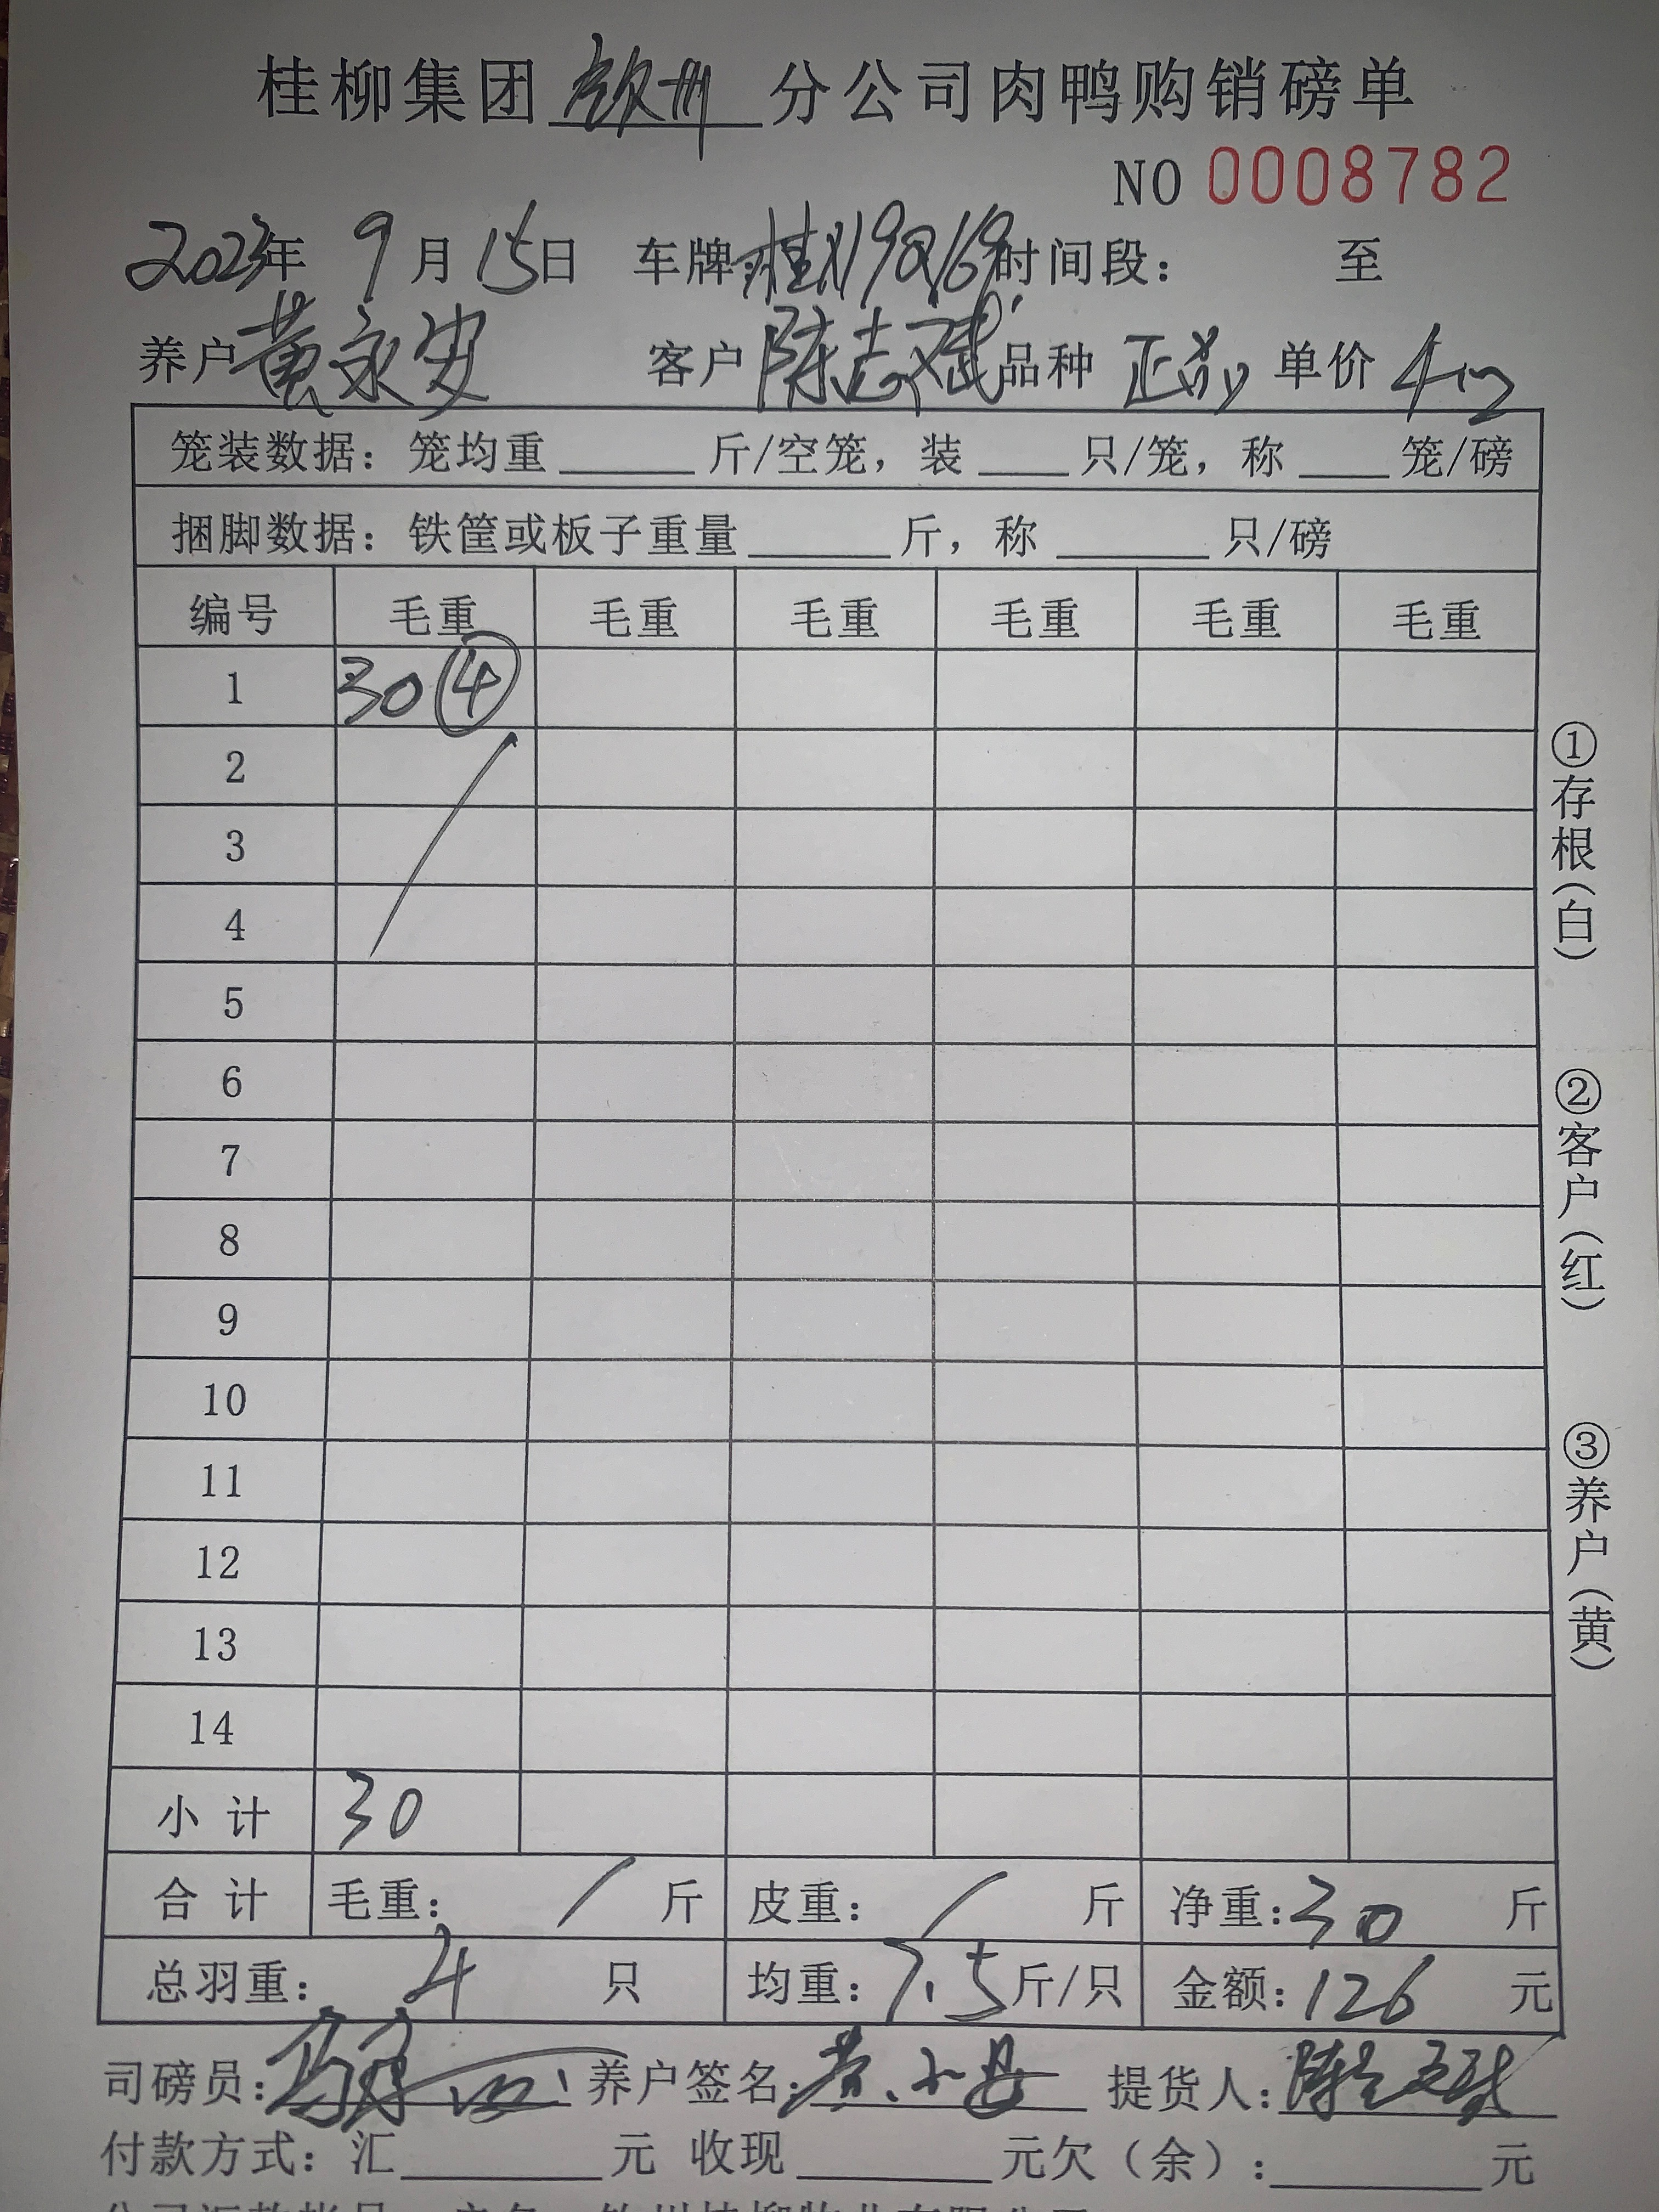 桂柳集团 钦州 分公司肉鸭购销磅单
NO 0008782
2023年 9月 15日 车牌: 时间段: 至
养户 黄永安 客户 陈志斌 品种 单价
笼装数据: 笼均重____斤/空笼, 装____只/笼, 称____笼/磅
捆脚数据: 铁筐或板子重量____斤, 称____只/磅
编号 毛重 毛重 毛重 毛重 毛重 毛重
1 30 ④
2
3
4
5
6
7
8
9
10
11
12
13
14
小计 30
合计 毛重: / 斤 皮重: / 斤 净重: 30 斤
总羽重: 4 只 均重: 7.5 斤/只 金额: 126 元
司磅员: 养户签名: 黄永安 提货人: 陈志斌
付款方式: 汇____元 收现____元欠(余):____元
①存根(白)
②客户(红)
③养户(黄)